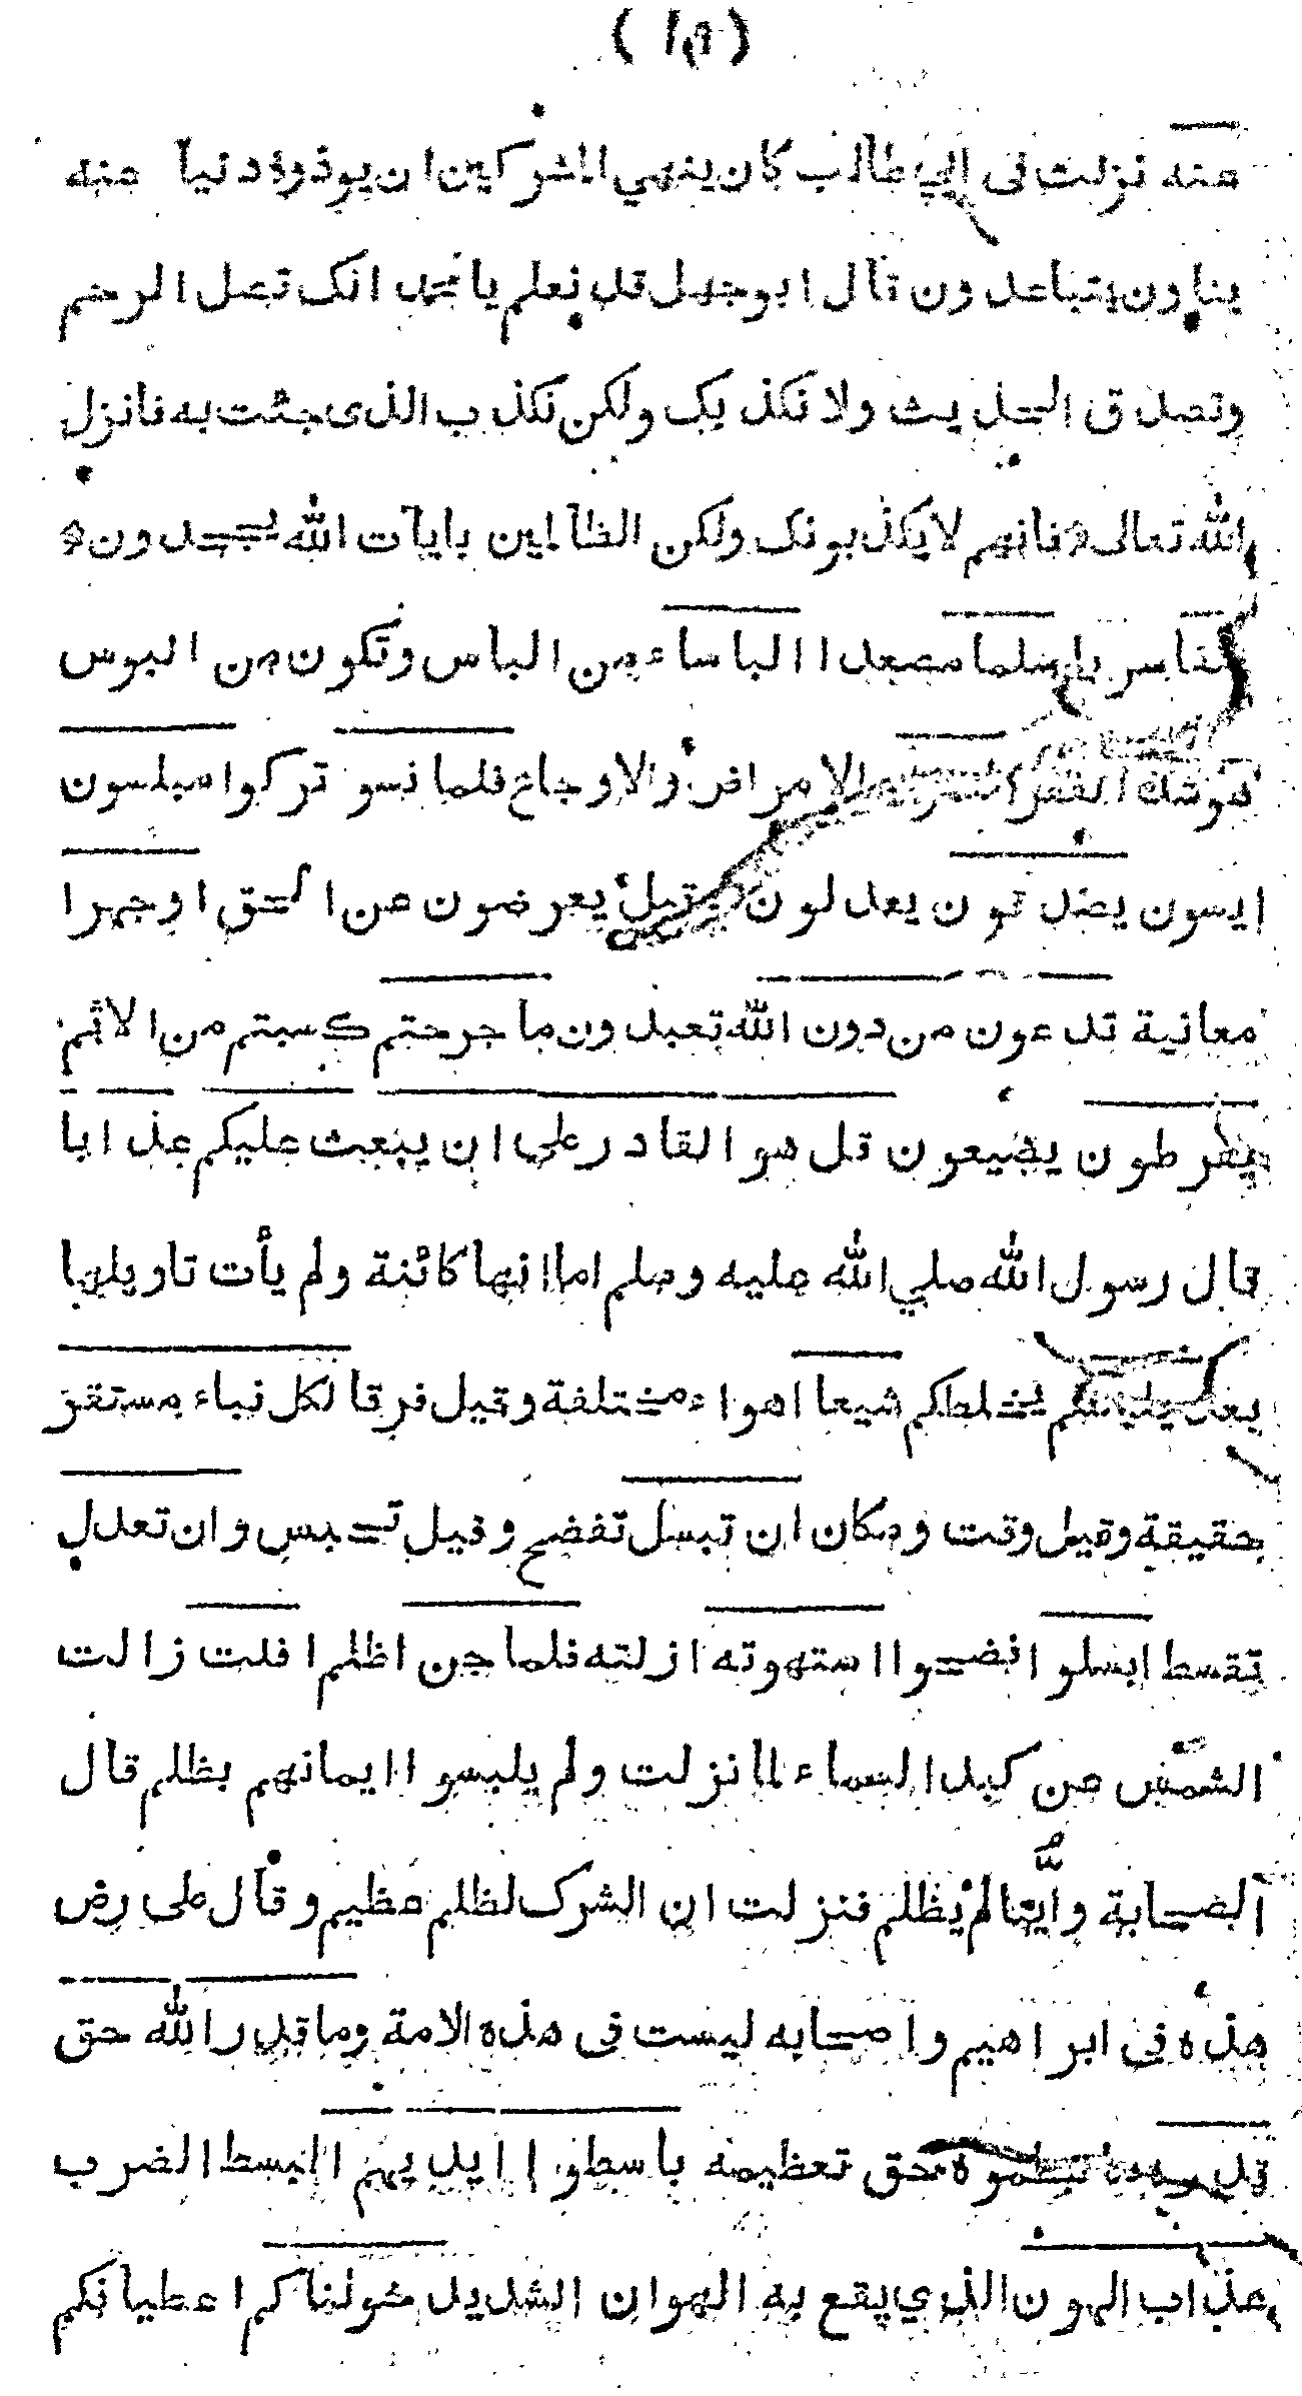 ( ١٩ )
عنه نزلت فى ابي طالب كان ينهي المشركين ان يوذوه دنيا عنه
يناون يتباعدون قال ابو جهل قد نعلم يا محمد انك تصل الرحم
وتصدق الحديث ولا نكذبك ولكن نكذب الذى جئت به فانزل
الله تعالى فانهم لا يكذبونك ولكن الظالمين بايات الله يجحدون ه
سلما مصعدا الباساء من الباس وتكون من البوس
الفقر والامراض والاوجاع فلما نسو تركوا مبلسون
ايسون يصدقون يعدلون وقيل يعرضون عن الحق او جهرا
معانية تدعون من دون الله تعبدون ما جرحتم كسبتم من الاثم
يفرطون يضيعون قل هو القادر على ان يبعث عليكم عذابا
قال رسول الله صلي الله عليه وسلم اما انها كائنة ولم يأت تاويلها
بعد يلبسكم يخلطكم شيعا اهواء مختلفة وقيل فرقا لكل نباء مستقر
حقيقة وقيل وقت ومكان ان تبسل تفضح وقيل تحبس وان تعدل
تقسط ابسلو افضحوا استهوته ازلته فلما جن اظلم افلت زالت
الشمس عن كبد السماء لما نزلت ولم يلبسوا ايمانهم بظلم قال
الصحابة وايّنا لم يظلم فنزلت ان الشرك لظلم عظيم وقال على رض
هذه فى ابراهيم واصحابه ليست فى هذه الامة وما قدر الله حق
قدره ما عظموه حق تعظيمه باسطوا ايديهم البسط الضرب
عذاب الهون الذي يقع به الهوان الشديد خولناكم اعطياتكم